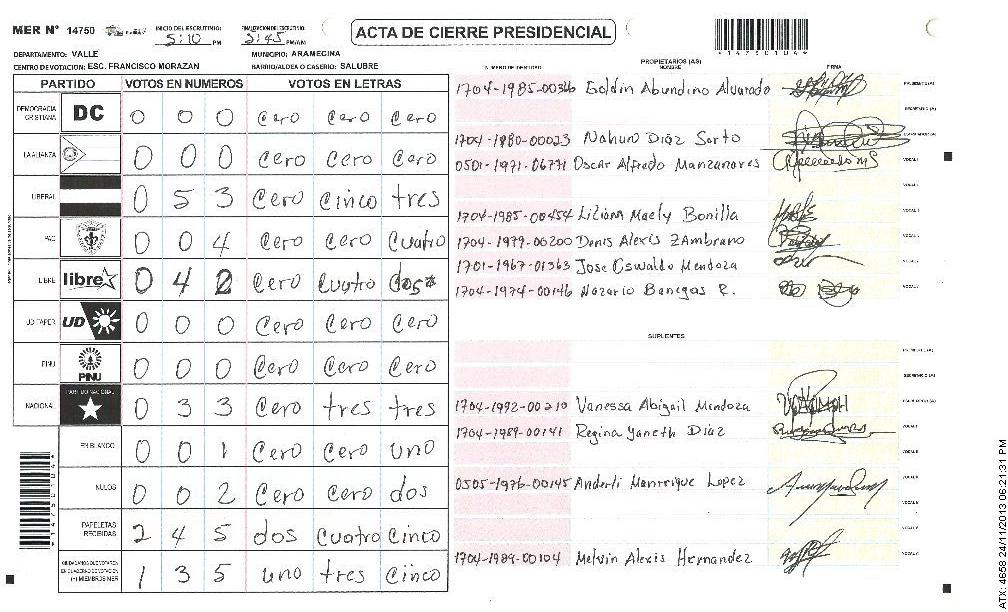 MER Nº 14750
INICIO DEL ESCRUTINIO: 5:10 PM
FINALIZACION DEL ESCRUTINIO: 5:45 PM/AM
ACTA DE CIERRE PRESIDENCIAL
*14750104*
DEPARTAMENTO: VALLE
MUNICIPIO: ARAMECINA
CENTRO DE VOTACION: ESC. FRANCISCO MORAZAN
BARRIO/ALDEA O CASERIO: SALUBRE
PARTIDO VOTOS EN NUMEROS VOTOS EN LETRAS
DEMOCRACIA CRISTIANA DC 0 0 0 Cero Cero Cero
LA ALIANZA 0 0 0 Cero Cero Cero
LIBERAL 0 5 3 Cero Cinco tres
PAC 0 0 4 Cero Cero Cuatro
LIBRE libre 0 4 2 Cero Cuatro dos*
UD FAPER UD 0 0 0 Cero Cero Cero
PINU PINU 0 0 0 Cero Cero Cero
NACIONAL PARTIDO NACIONAL 0 3 3 Cero tres tres
EN BLANCO 0 0 1 Cero Cero uno
NULOS 0 0 2 Cero Cero dos
PAPELETAS RECIBIDAS 2 4 5 dos Cuatro Cinco
CIUDADANOS QUE VOTARON EN CUADERNO DE VOTACION (+) MIEMBROS MER 1 3 5 uno tres Cinco
*14750104*
PROPIETARIOS (AS)
NUMERO DE IDENTIDAD NOMBRE FIRMA
1704-1985-00346 Goldin Abundino Alvarado PRESIDENTE (A)
SECRETARIO (A)
1704-1980-00023 Nahun Diaz Sorto ESCRUTADOR (A)
0501-1971-06771 Oscar Alfredo Manzanares VOCAL I
1704-1985-00454 Liliana Maely Bonilla
1704-1979-00200 Denis Alexis Zambrano
1701-1967-01363 Jose Oswaldo Mendoza
1704-1974-00146 Nazario Banegas R.
SUPLENTES
PRESIDENTE (A)
SECRETARIO (A)
1704-1992-00210 Vanessa Abigail Mendoza ESCRUTADOR (A)
1704-1989-00141 Regina Yaneth Diaz VOCAL I
0505-1976-00145 Anderli Manrrique Lopez
1704-1989-00104 Melvin Alexis Hernandez
ATX: 4658 24/11/2013 06:21:31 PM